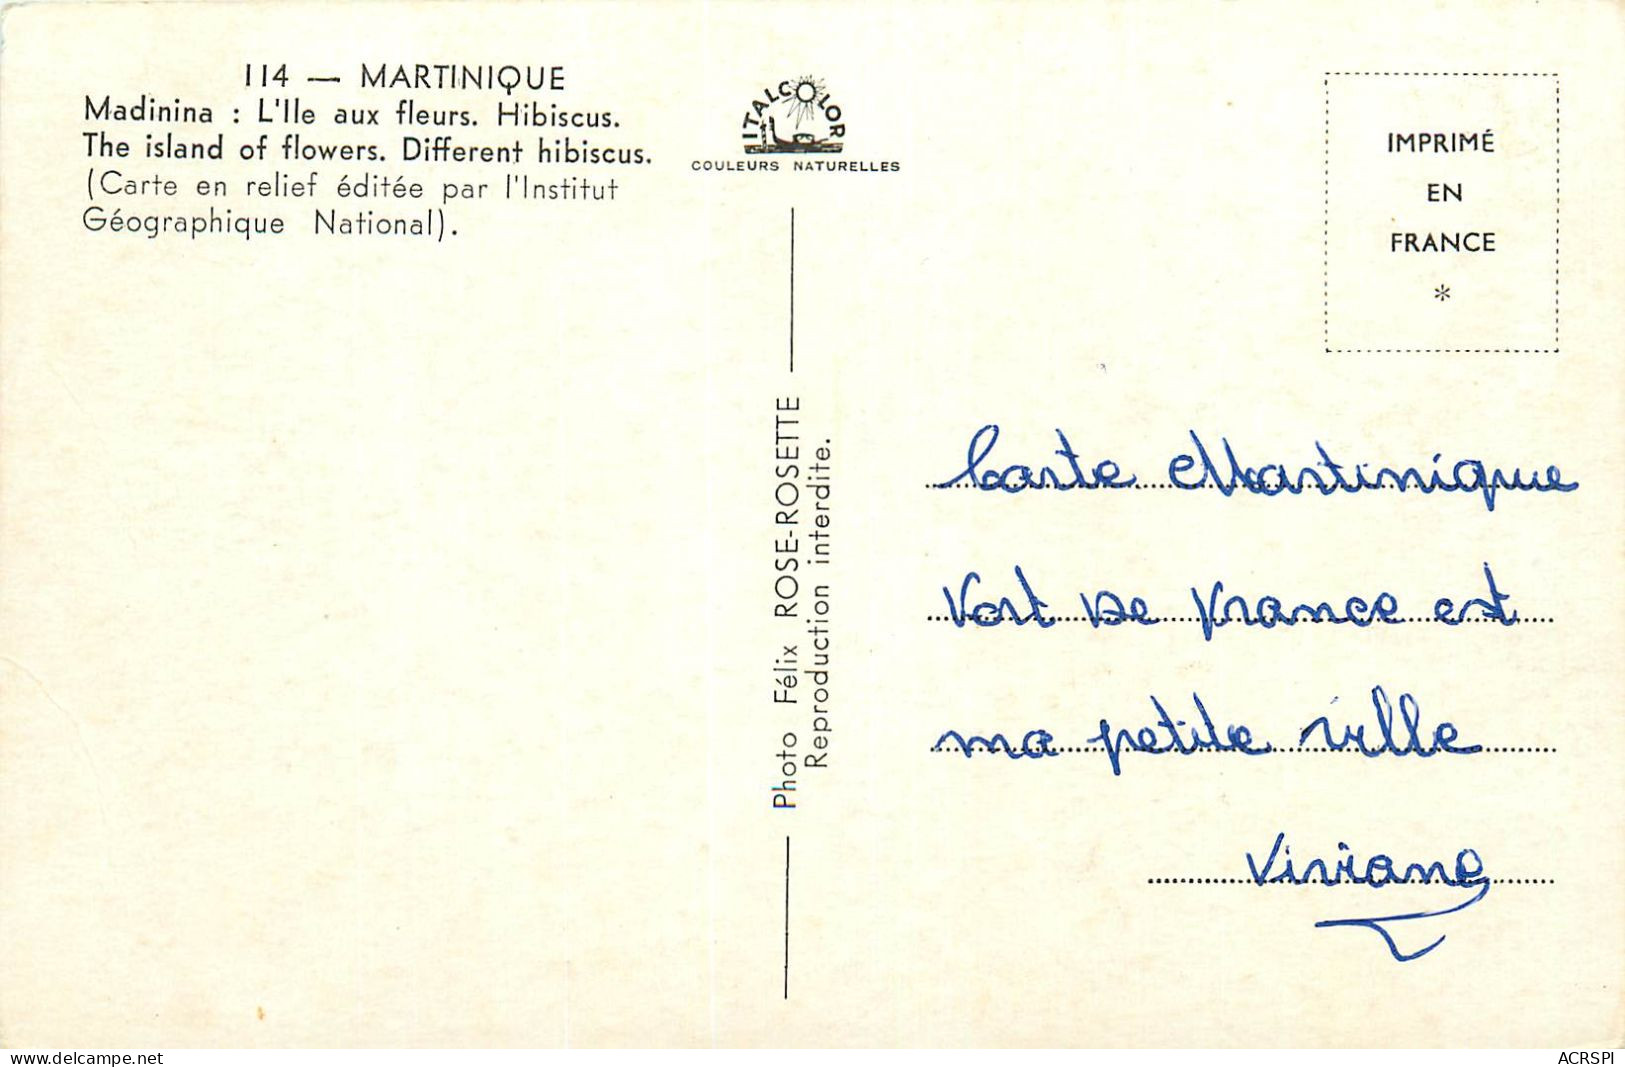 114 — MARTINIQUE
Madinina : L'Ile aux fleurs. Hibiscus.
The island of flowers. Different hibiscus.
(Carte en relief éditée par l'Institut
Géographique National).
ITALCOLOR
COULEURS NATURELLES
IMPRIMÉ
EN
FRANCE
*
Photo Félix ROSE-ROSETTE
Reproduction interdite.
Carte Martinique
Fort de France est
ma petite ville
Viviane
www.delcampe.net
ACRSPI